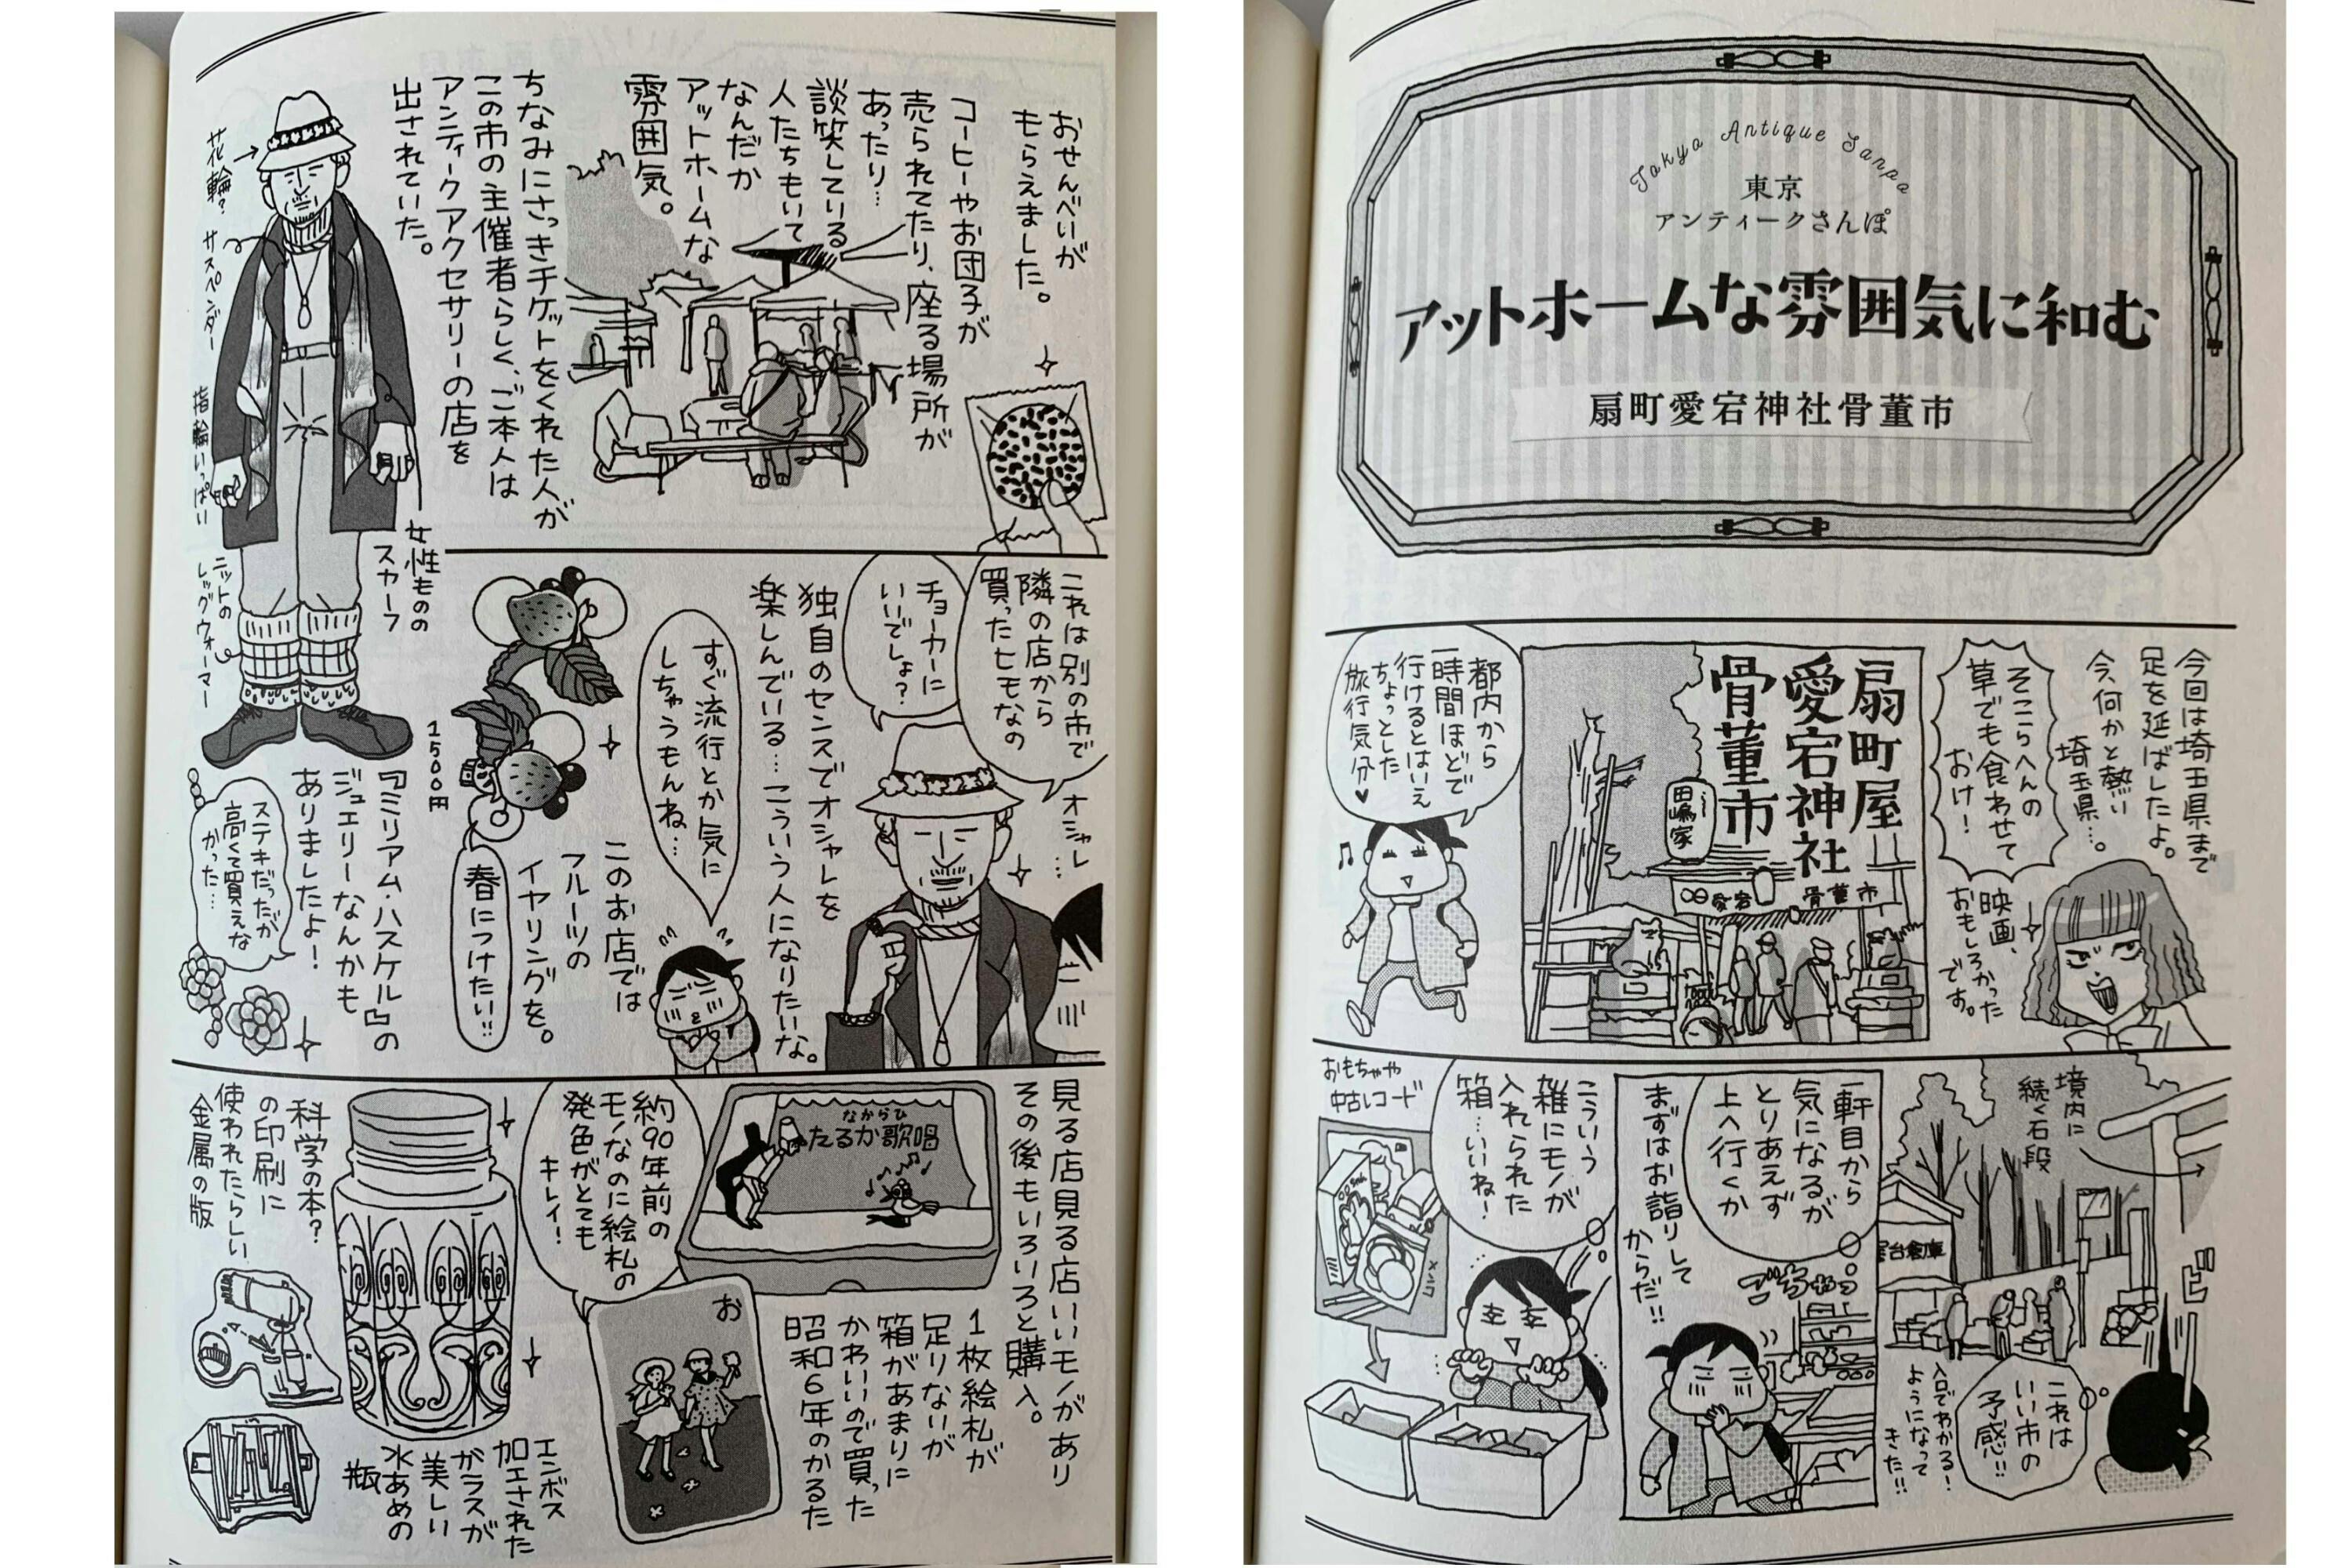 Tokyo Antique Sanpo
東京
アンティークさんぽ
アットホームな雰囲気に和む
扇町愛宕神社骨董市
今回は埼玉県まで
足を延ばしたよ。
今、何かと熱い
埼玉県…。
そこらへんの
草でも食わせて
おけ！
映画、
おもしろかった
です。
扇町屋
愛宕神社
骨董市
田嶋家
愛宕
骨董市
都内から
一時間ほどで
行けるとはいえ
ちょっとした
旅行気分♥
境内に
続く石段
屋台倉庫
ピ
これは
いい市の
予感!!
入口でわかる！
ようになって
きた!!
一軒目から
気になるが
とりあえず
上へ行くか
ごちゃっ
まずはお詣りして
からだ!!
こういう
雑にモノが
入れられた
箱…いいね！
おもちゃや
中古レコード
おせんべいが
もらえました。
コーヒーやお団子が
売られてたり、座る場所が
あったり…
談笑している
人たちもいて
なんだか
アットホームな
雰囲気。
ちなみにさっきチケットをくれた人が
この市の主催者らしく、ご本人は
アンティークアクセサリーの店を
出されていた。
花輪？
サスペンダー
指輪いっぱい
女性ものの
スカーフ
ニットの
レッグウォーマー
これは別の市で
隣の店から
買ったヒモなの
チョーカーに
いいでしょ？
オシャレ
…
独自のセンスでオシャレを
楽しんでいる…こういう人になりたいな。
すぐ流行とか気に
しちゃうもんね…
このお店では
フルーツの
イヤリングを。
春につけたい!!
1500円
『ミリアム・ハスケル』の
ジュエリーなんかも
ありましたよ！
ステキだったが
高くて買えな
かった…
見る店見る店いいモノがあり
その後もいろいろと購入。
なからひ
たるか歌唱
1枚絵札が
足りないが
箱があまりに
かわいいので買った
昭和6年のかるた
約90年前の
モノなのに絵札の
発色がとても
キレイ！
お
エンボス
加工された
ガラスが
美しい
水あめの
瓶
科学の本？
の印刷に
使われたらしい
金属の版